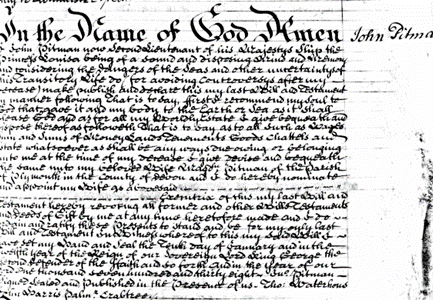 In the Name of God Amen John Pitman
I John Pitman now Second Lieutenant of his Majestys Ship the
Princess Louisa being of a Sound and disposing Mind and Memory
and Considering the Dangers of the Seas and other uncertaintys of
this Transitory Life do (for avoiding Controversys after my
Decease) make publish and declare this my last Will and Testament
in manner following That is to say first I recommend my Soul to
God that gave it and my body to the Earth or Sea as it shall
please God and as for all my Worldly Estate I give bequeath and
dispose thereof as followeth That is to say as to all such Wages
Sum and Sums of Money Lands Tenements Goods Chattels and
Estate whatsoever as shall be any ways due owing or belonging
unto me at the time of my decease I give devise and bequeath
the same unto my beloved Wife Pitman of the Parish
of Plymouth in the County of Devon and I do hereby nominate
and appoint my Wife as aforesaid
Executrix of this my last Will and
Testament hereby revoking all former and other Wills Testaments
and Deeds of Gift by me at any time heretofore made and I do
and ratify these Presents to stand and be for my only last
Will and Testament In Witness whereof to this my said Will I
have set my Hand and Seal the Tenth day of January and in the
year of the Reign of our Sovereign Lord King George the
Second Defender of the Faith and so forth And in the year of our
Lord One thousand seven hundred and thirty eight Jno. Pitman
Signed Sealed and Published in the Presence of us Tho. Waterhous
Harris Crabtree